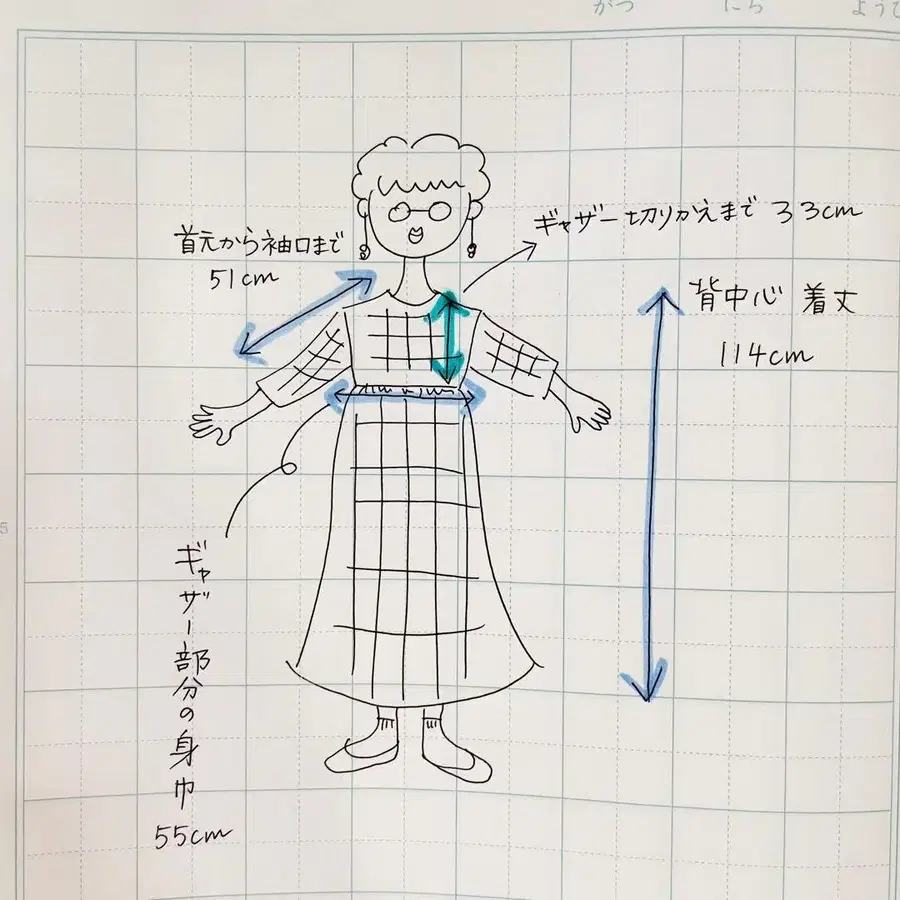 がつ にち ようび
ギャザー切りかえまで 33cm
首元から袖口まで
51cm
背中心 着丈
114cm
5
ギャザー部分の身巾
55cm